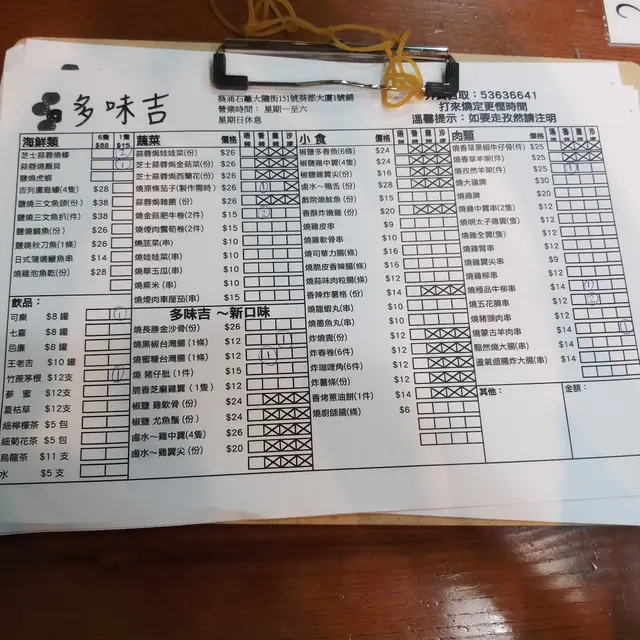 多味吉
葵涌石籬大隴街151號葵都大廈1號舖
營業時間： 星期一至六
星期日休息
取：53636641
打來燒定更慳時間
溫馨提示：如要走孜然請注明
海鮮類 6隻 $88 1隻 $15
芝士蒜蓉燒蠔 2
蒜蓉燒扇貝 1
鹽燒虎蝦
吉列廣島蠔(4隻) $28
鹽燒三文魚頭(份) $38
鹽燒三文魚扒(件) $38
鹽燒鯖魚(份) $26
鹽燒秋刀魚(1條) $26
日式蒲燒鰻魚串 $14
燒雞泡魚乾(份) $28
飲品：
可樂 $8 罐 1
七喜 $8 罐
忌廉 $8 罐
王老吉 $10 罐
竹蔗茅根 $12支 1
蔘 蜜 $12支
夏枯草 $12支
細檸檬茶 $5 包
細菊花茶 $5 包
烏龍茶 $11 支
水 $5 支
蔬菜 價格
蒜蓉焗娃娃菜(份) $26
芝士蒜蓉焗金菇菜(份) $26
芝士蒜蓉焗西蘭花(份) $26
燒原條茄子(製作需時) $26 1
蒜蓉焗雜菌 (份) $26
燒金菇肥牛卷(2件) $15 2
燒煙肉露荀卷(2件) $15
燒韮菜(串) $10
燒娃娃菜(串) $10
燒翠玉瓜(串) $10
燒粟米 (串) $10
燒煙肉車厘茄(串) $15
多味吉 ～新口味
燒長勝金沙骨(份) $26
燒黑椒台灣腸 (1條) $12 1
燒蜜糖台灣腸 (1條) $12 1
燒 豬仔肶 (1件) $15
脆香芝麻雞翼 (1隻) $12
椒鹽 雞軟骨 (份) $24
椒鹽 尤魚鬚 (份) $24
鹵水～雞中翼(4隻) $26
鹵水～雞翼尖 (份) $20
小食 價格
椒鹽多春魚(6條) $24
椒鹽雞中翼(4隻) $24
椒鹽雞翼尖(份) $16
鹵水～鴨舌 (份) $28
戲院燒魷魚 (份) $15
香酥炸嫩雞 (份) $20
燒雞皮串 $9
燒雞軟骨串 $10
燒司華力腸(條) $16
燒脆皮香辣腸(條) $16
燒蒜味肉粒腸(條) $12
香辣炸薯格 (份) $14
燒龍蝦丸(串) $10
燒墨魚丸(串) $10
炸燒賣(份) $12 1
炸春卷(6件) $12
炸咖哩角(6件) $12
炸薯條(份) $12
香烤蔥油餅(1件) $14
燒廚師腸(條) $6
肉類 價格
燒香草黑椒牛仔骨(件) $25
燒香草羊架(件) $25
燒孜然羊架(件) $25 1
燒大雞脾 $30
燒雞脾 $20
燒雞中翼串(2隻) $12
燒明太子雞翼(隻) $12
燒雞全翼(隻) $12
燒雞腎串 $12
燒雞翼尖串 $12
燒雞柳串 $12
燒極品牛柳串 $14 1
燒五花腩串 $12 2
燒豬頸肉串 $12
燒蒙古羊肉串 $14 1
黯然燒大腸(串) $14
盪氣迴腸炸大腸(串) $14
其他： 金額：